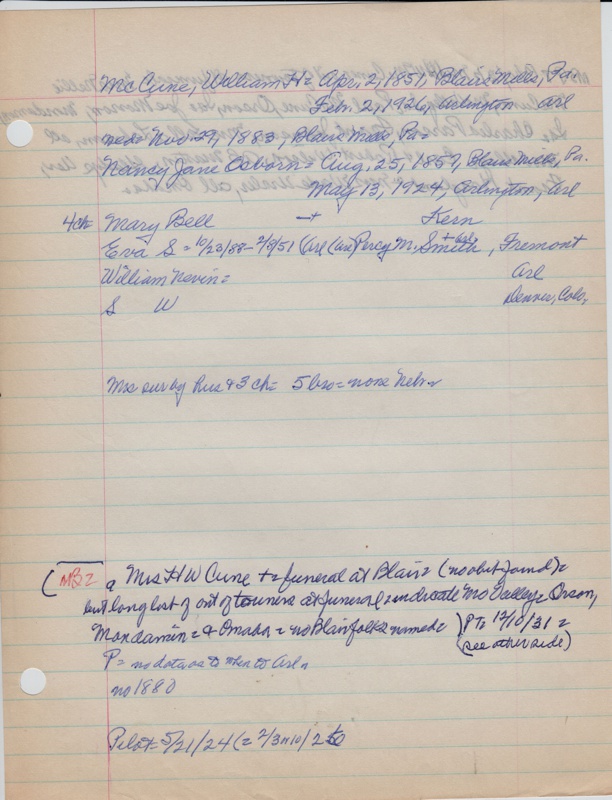 McCune, William H = Apr. 2, 1851, Blairs Mills, Pa.
Feb. 2, 1926, Arlington Arl
med = Nov. 29, 1883, Blairs Mills, Pa =
Nancy Jane Osborn = Aug. 25, 1859, Blairs Mills, Pa.
May 13, 1924, Arlington, Arl
4 ch = Mary Bell + Kern
Eva S = 10/23/88 - 2/8/51 (Arl (an) Percy M. Smith + Arl, Fremont
William Nevin = Arl
S W Denver, Colo.
Mrs sur by hus + 3 ch = 5 bro = none Nebr
(MB= a Mrs H W Cune += funeral at Blair = (no obit found) =
but long list of out of towners at funeral = indicate Mo Valley = Orson,
Mondamin = + Omaha = no Blair folks named = ) PT = 12/10/31 =
(see other side)
P = no data as to when to Arl =
no 1880
Pilot = 5/21/24 (= 2/3 n 10/2